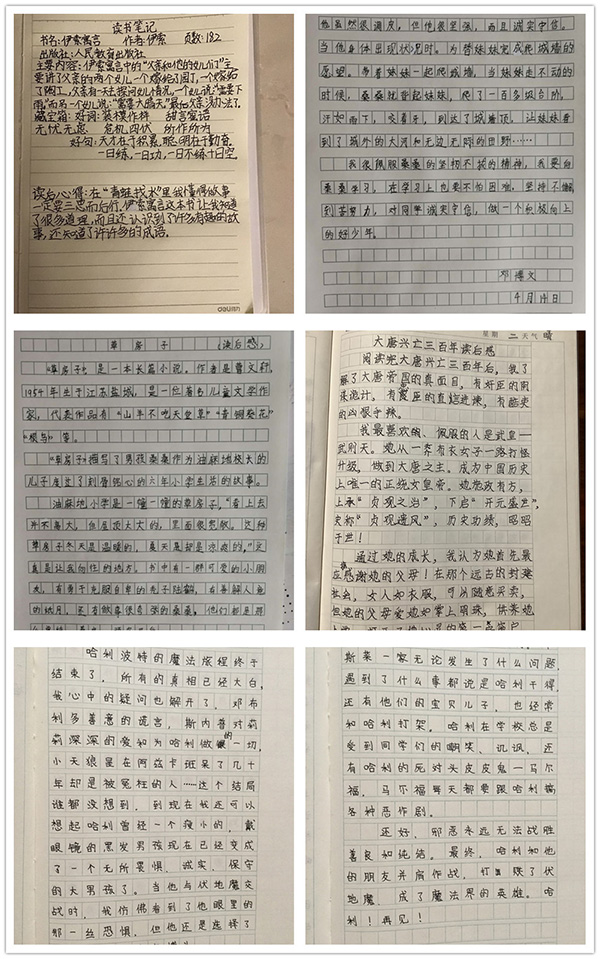 读书笔记
书名:伊索寓言 作者:伊索 页数:182
出版社:人民教育出版社
主要内容:伊索寓言中的“父亲和他的女儿们”主
要讲了父亲的两个女儿,一个嫁给了园丁,一个嫁给
了陶工,父亲有一天去探问女儿情况,一个女儿说:“需要下
雨。”而另一个女儿说:“需要大晴天。”最后父亲没办法了。
藏宝箱:好词:装模作样 甜言蜜语
无忧无虑 危机四伏 所作所为
好句:天才在于积累,聪明在于勤奋
一日练,一日功,一日不练十日空。
读后心得:在“青蛙找水”里我懂得做事
一定要三思而后行,伊索寓言这本书让我知道
了很多道理,而且还认识到了许多有趣的故
事,还知道了许许多的成语。
deli
他虽然很调皮,但他很坚强,而且诚实守信。
当他身体出现状况时,为替妹妹完成爬城墙的
愿望。带着妹妹一起爬城墙,当妹妹走不动的
时候,桑桑就背起妹妹,爬了一百多级台阶,
汗如雨下,咬着牙,到达了城墙顶,让妹妹看
到了城外的大河和无边无际的田野……
我很佩服桑桑的坚韧不拔的精神,我要向
桑桑学习,在学习上也要不怕困难,坚持不懈
刻苦努力,对同学诚实守信,做一个积极向上
的好少年。
邓博文
4月19日
草房子 (读后感)
《草房子》是一本长篇小说。作者是曹文轩,
1954年生于江苏盐城,是一位著名儿童文学作
家,代表作品有“山羊不吃天堂草”“青铜葵花”
“根鸟”等。
《草房子》描写了男孩桑桑作为油麻地校长的
儿子度过了刻骨铭心的六年小学生活的故事。
油麻地小学是一幢一幢的草房子,“看上去
并不高大,但屋顶大大的,里面很宽敞。这种
草房子冬天是温暖的,夏天是却是凉爽的,”之
真是让我向往的地方。书中有一群可爱的小朋
友,有勇于克服自卑的秃子陆鹤,有善解人意
的纸月,还有做事很夸张的桑桑,他们都是那
星期二 天气 晴
大唐兴亡三百年读后感
阅读完大唐兴亡三百年后,我了
解了大唐帝国的真面目,有奸臣的阴
谋诡计,有良臣的直言进谏,有酷吏
的凶狠手辣。
我最喜欢的、佩服的人是武皇——
武则天。她从一介布衣女子一路打怪
升级,做到大唐之主。成为中国历史
上唯一的正统女皇帝。她勤政有方,
上承“贞观之治”,下启“开元盛世”,
史称“贞观遗风”,历史功绩,昭昭
于世!
通过她的成长,我认为她首先最
应该感谢她的父母!在那个远古的封建
社会,女人如衣服,可以随意买卖,
但她的父母爱她如掌上明珠,供养她
哈利波特的魔法旅程终于
结束了,所有的真相已经大白,
我心中的疑问也解开了,邓布
利多善意的谎言,斯内普对莉
莉深深的爱和为哈利做的一切,
小天狼星在阿兹卡班呆了几十
年却是被冤枉的人……这个结局
谁都没想到,到现在我还可以
想起哈利曾经一个瘦小的,戴
眼镜的黑发男孩现在已经变成
了一个无所畏惧、诚实、保守
的大男孩了。当他与伏地魔交
战时,我仿佛看到了他眼里的
那一丝恐惧,但他还是选择了
斯莱一家无论发生了什么问题,
遇到了什么事都说是哈利干得,
还有他们的宝贝儿子,也经常
和哈利打架。哈利在学校总是
受到同学们的嘲笑、讥讽,还
有哈利的死对头皮皮鬼—马尔
福,马尔福每天都要跟哈利搞
各种恶作剧。
还好,邪恶永远无法战胜
善良和纯洁。最终,哈利和他
的朋友并肩作战,打败了伏
地魔,成了魔法界的英雄。哈
利!再见!